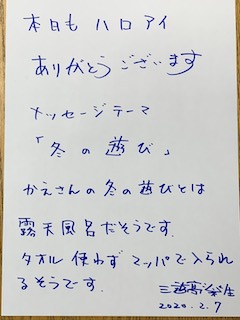 本日も ハロアイ
ありがとうございます
メッセージテーマ
「冬の遊び」
かえさんの冬の遊びとは
露天風呂だそうです.
タオル使わず マッパで入られ
るそうです.
2020.2.7